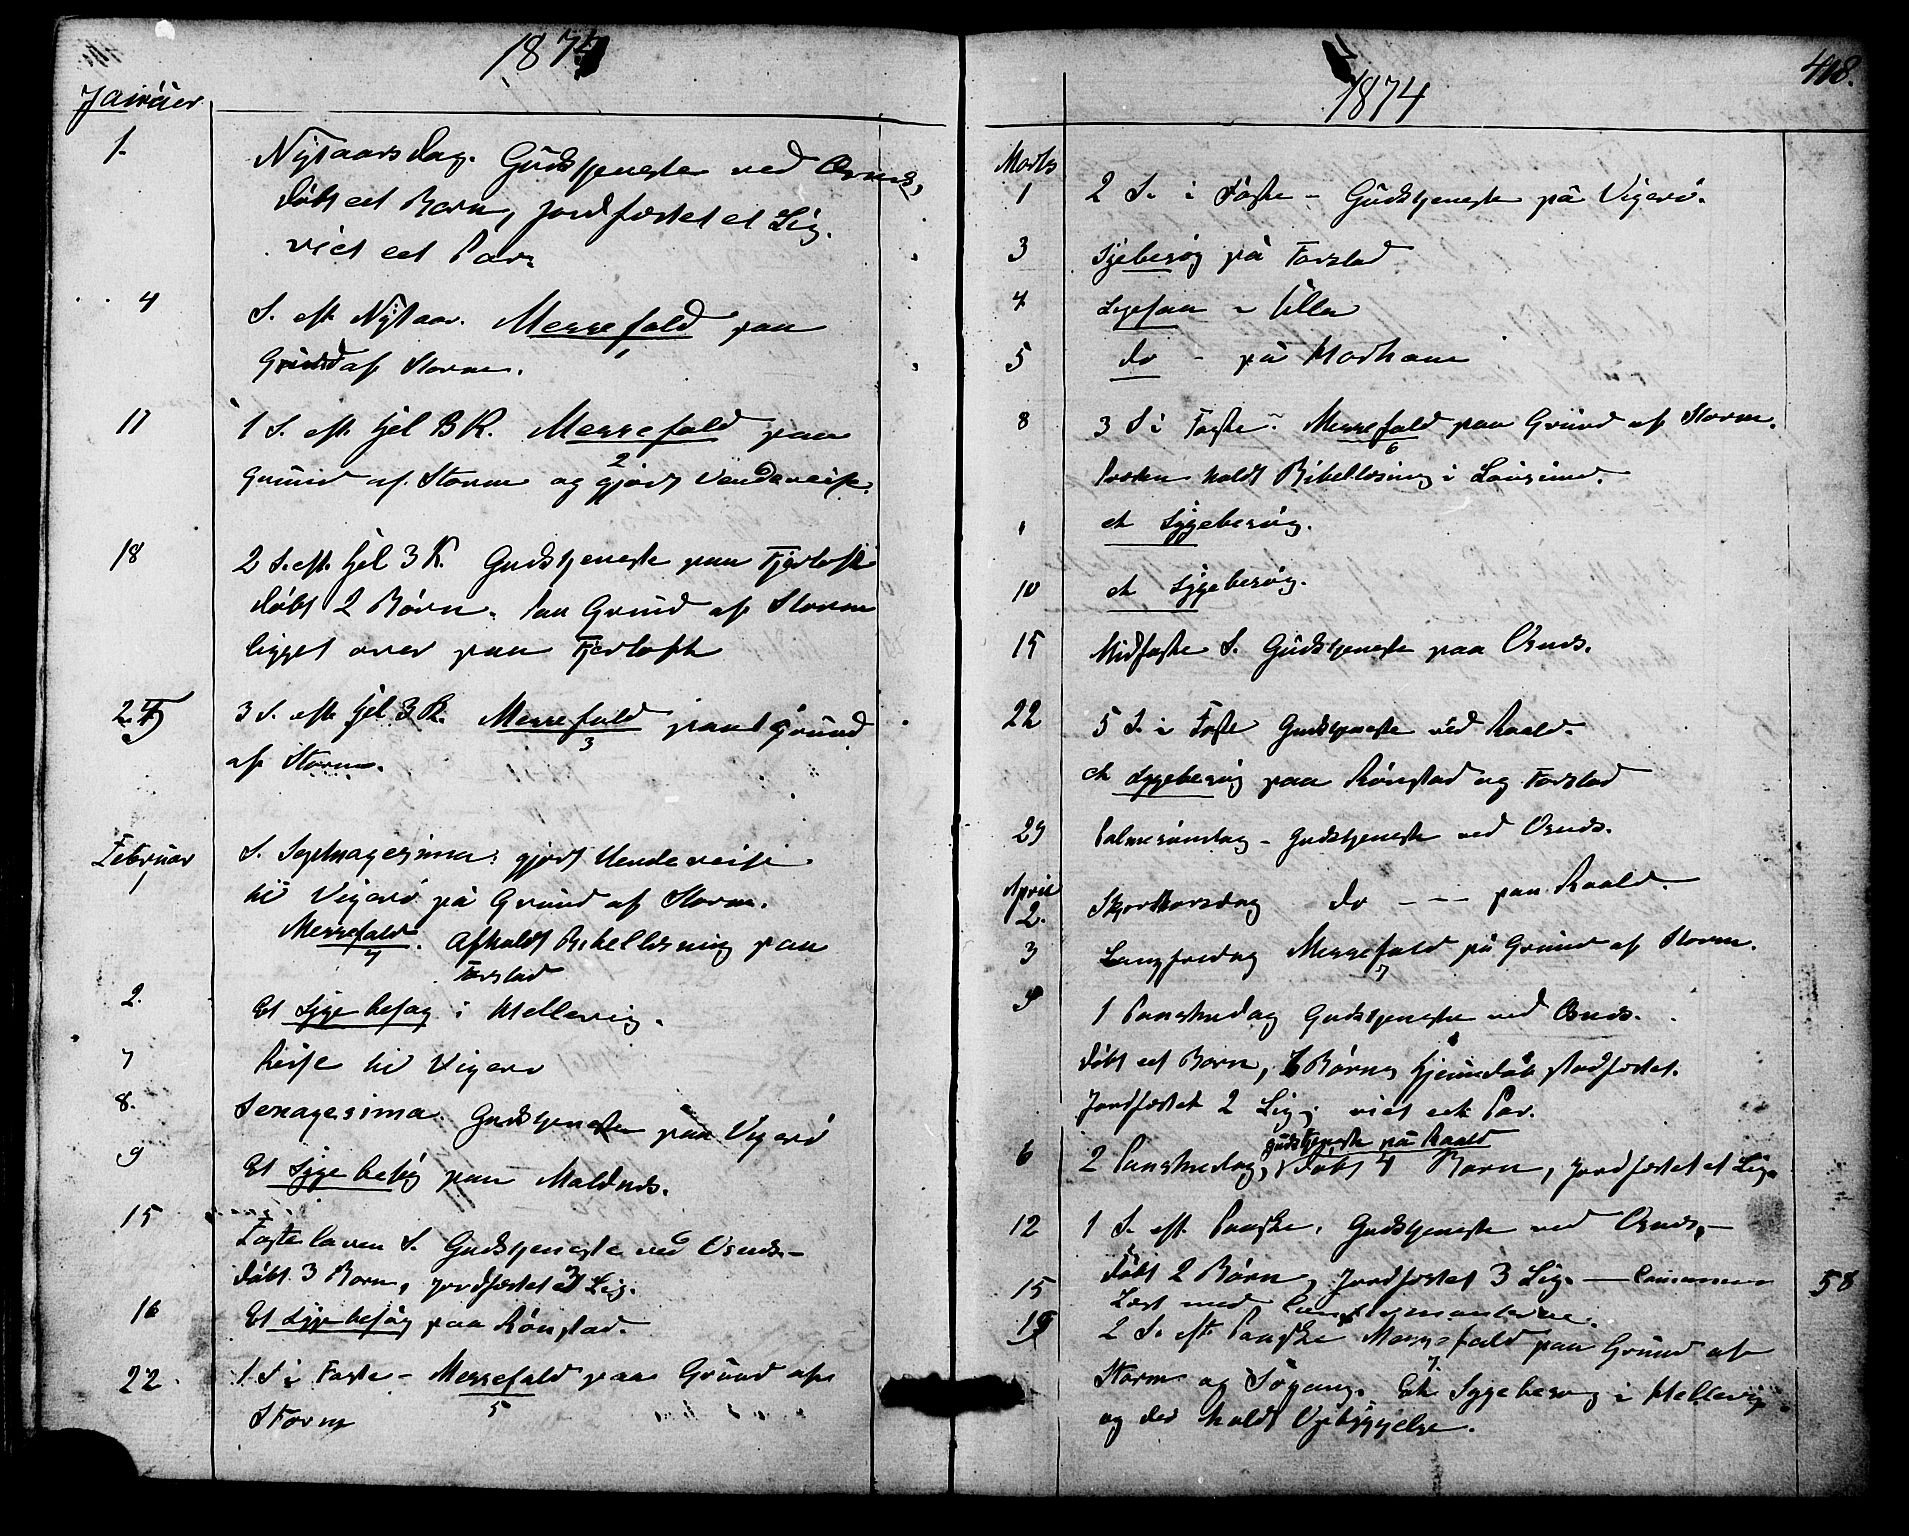 1874
Januar
1. Nytaarsdag. Gudstjeneste ved Osnæs,
døbt eet Barn, jordfæstet et Lig.
viet eet Par.
4 S. eft Nytaar. Messefald paa
1
Grund af Storm.
11 1 S. eft. hel 3 K. Messefald paa
2
Grund af Storm og gjort Vendereise.
18 2 S. eft. hel 3 K. Gudstjeneste paa Fjørtoft
døbt 2 Børn. Paa Grund af Storm
ligget over paa Fjørtoft
25 3 S. eft. hel 3 K. Messefald paa Grund
3
af Storm.
Februar
1 S. Septuagesima. gjort Vendereise
til Vigerø på Grund af Storm.
Messefald. Afholdt Bibellæsning paa
4
Farstad
2. Et Sygebesøg i Mellevig.
7 Reise til Vigerø
8. Sexagesima Gudstjeneste paa Vigerø
9 Et Sygebesøg paa Maldnes.
15 Fastelaven S. Gudstjeneste ved Osnæs.
døbt 3 Børn, jordfæstet 3 Lig.
16 Et Sygebesøg paa Rønstad.
22 1 S i Faste – Messefald paa Grund af
5
Storm
1874
418.
Marts
1 2 S. i Faste – Gudstjeneste på Vigerø.
3 Sygebesøg på Farstad
4 Ligefaa – Ulla
5 do – på Hodhavn
8 3 S i Faste – Messefald paa Grund af Storm.
6
Præsten holdt Bibellæsning i Longsund.
et Sygebesøg.
10 et Sygebesøg.
15 Midfaste S. Gudstjeneste paa Osnæs.
22 5 S. i Faste Gudstjeneste ved Roald.
et Sygebesøg paa Rønstad og Farstad
29 Palmesøndag – Gudstjeneste ved Osnæs.
April
2. Skjærthorsdag do – – – paa Roald.
3 Langfredag Messefald på Grund af Storm.
7
5 1 Paaskedag Gudstjeneste ved Osnæs.
døbt eet Barn, Børns Hjemmedåb stadfæstet.
Jordfæstet 2 Lig; viet eet Par.
gudstjeneste på Roald
6 2 Paaskedag, døbt 4 Børn, jordfæstet et Lig.
12 1 S. eft. Paaske. Gudstjeneste ved Osnæs,
døbt 2 Børn, Jordfæstet 3 Lig. – Commun 58
15 Læst med Confirmanterne.
19 2 S. eft. Paaske Messefald paa Grund af
7.
Storm og Søgang. Et Sygebesøg i Mellevig
og der holdt Opbyggelse.